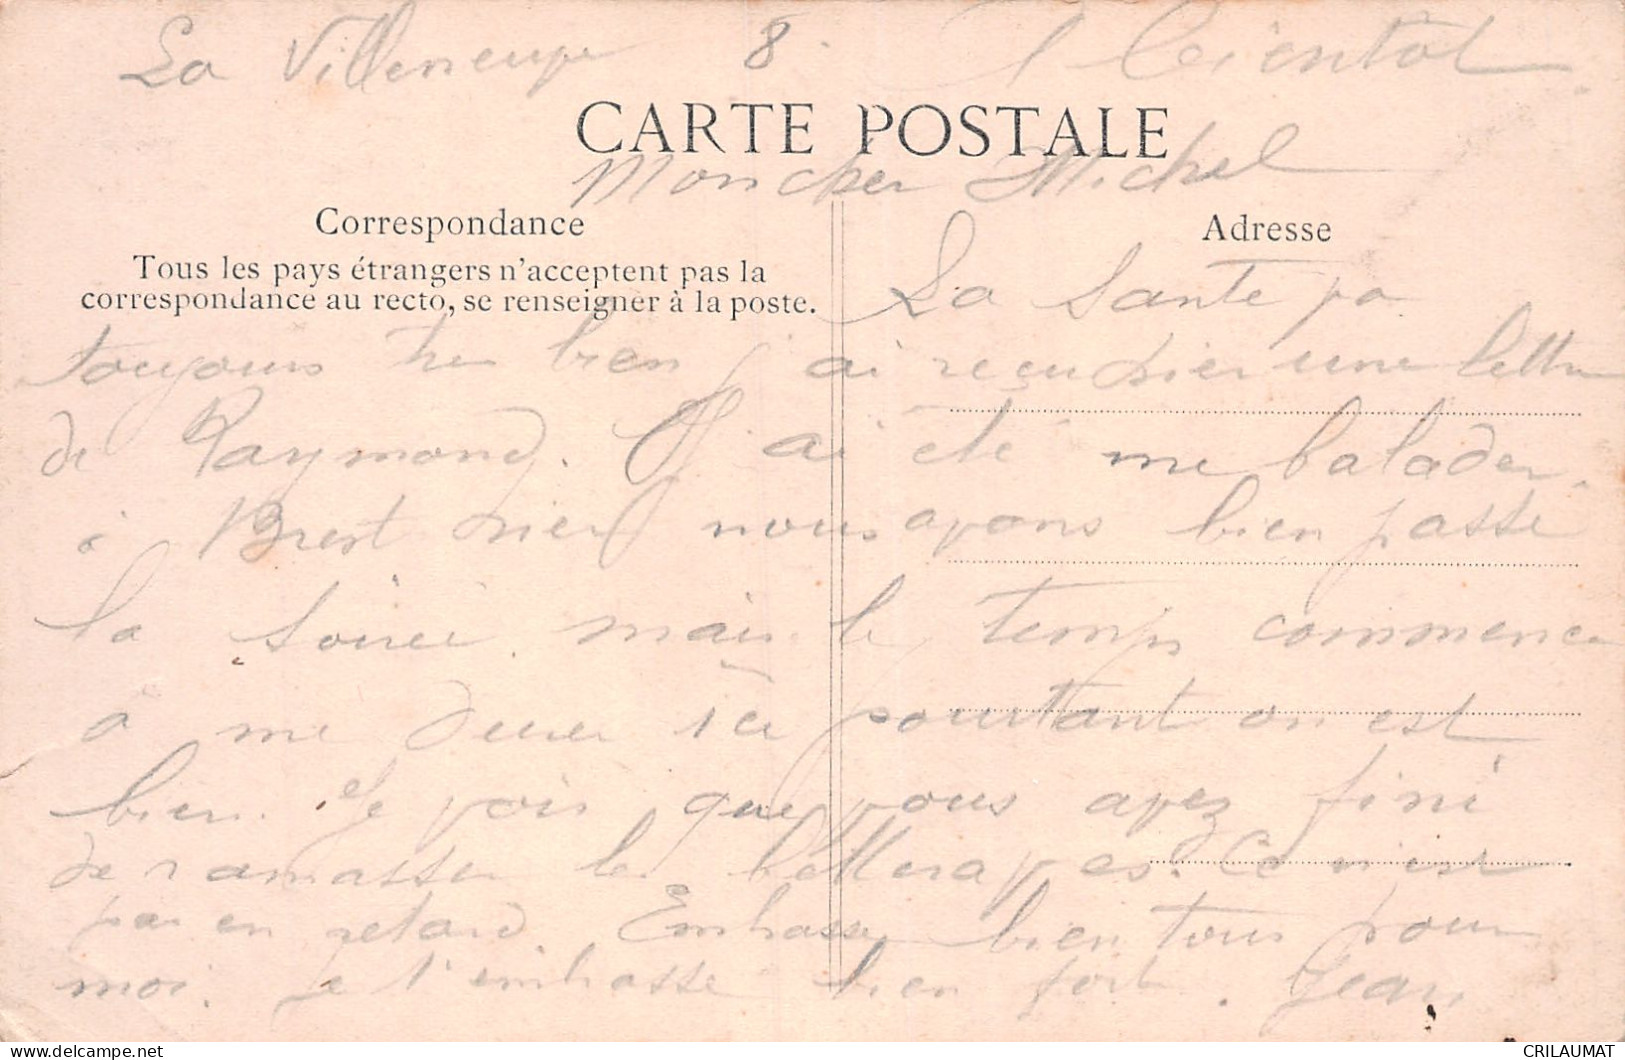 La Villeneuve 8. A bientot
CARTE POSTALE
Mon cher Michel
Correspondance
Adresse
Tous les pays étrangers n'acceptent pas la
correspondance au recto, se renseigner à la poste.
La Sante va
toujours tres bien j'ai reçu hier une lettre
de Raymond. J'ai été me balader
à Brest hier nous avons bien passé
la soirée. mais le temps commence
à me durer ici pourtant on est
bien. Je vois que vous avez fini
de ramasser les betteraves. Ce n'est
pas en retard. Embrasse bien tous pour
moi. Je t'embrasse bien fort. Jean
CRILAUMAT